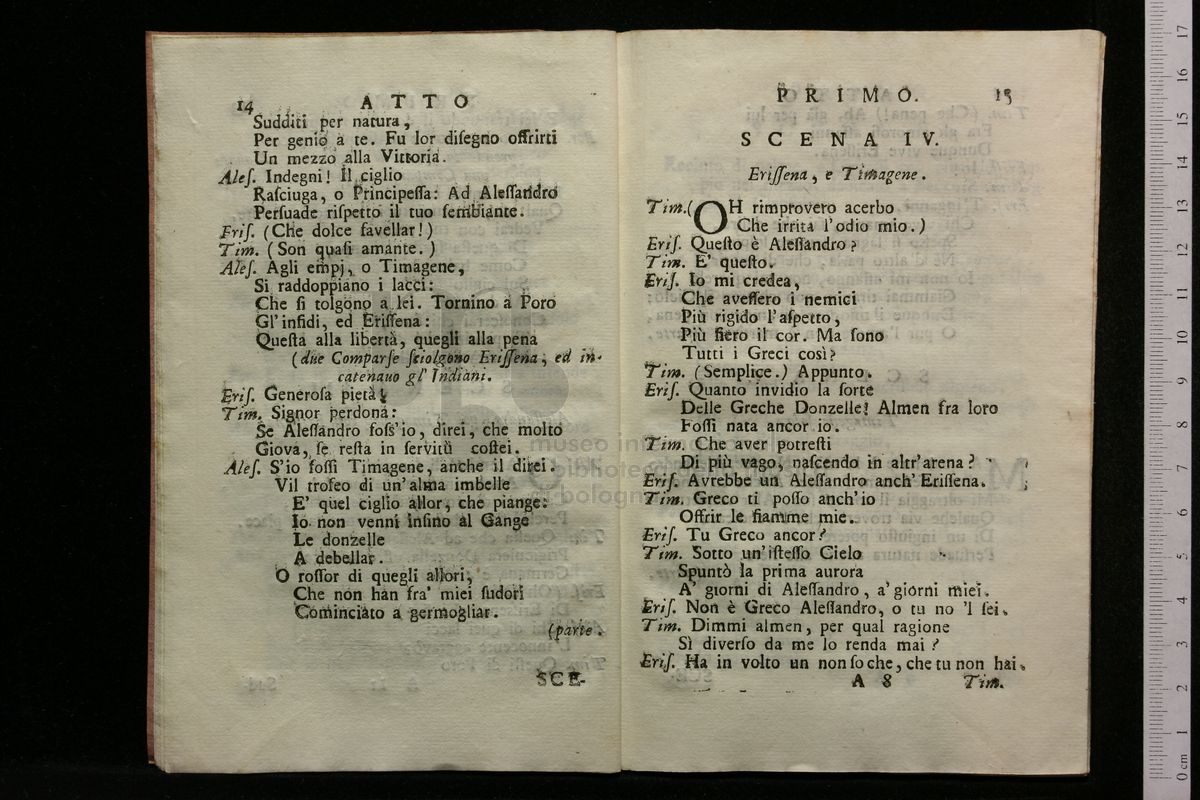 14 ATTO
Sudditi per natura,
Per genio a te. Fu lor diſegno offrirti
Un mezzo alla Vittoria.
Aleſ. Indegni! Il ciglio
Raſciuga, o Principeſſa: Ad Aleſſandro
Perſuade riſpetto il tuo ſembiante.
Eriſ. (Che dolce favellar!)
Tim. (Son quaſi amante.)
Aleſ. Agli empj, o Timagene,
Si raddoppiano i lacci:
Che ſi tolgono a lei. Tornino a Poro
Gl'infidi, ed Eriſſena:
Queſta alla libertà, quegli alla pena
(due Comparſe ſciolgono Eriſſena, ed in-
catenano gl' Indiani.
Eriſ. Generoſa pietà!
Tim. Signor perdona:
Se Aleſſandro foſs'io, direi, che molto
Giova, ſe reſta in ſervitù coſtei.
Aleſ. S'io foſſi Timagene, anche il direi.
Vil trofeo di un'alma imbelle
E' quel ciglio allor, che piange:
Io non venni inſino al Gange
Le donzelle
A debellar.
O roſſor di quegli allori,
Che non han fra' miei ſudori
Cominciato a germogliar.
(parte.
SCE-
PRIMO. 15
SCENA IV.
Eriſſena, e Timagene.
Tim. (OH rimprovero acerbo
Che irrita l'odio mio.)
Eriſ. Queſto è Aleſſandro?
Tim. E' queſto.
Eriſ. Io mi credea,
Che aveſſero i nemici
Più rigido l'aſpetto,
Più fiero il cor. Ma ſono
Tutti i Greci così?
Tim. (Semplice.) Appunto.
Eriſ. Quanto invidio la ſorte
Delle Greche Donzelle! Almen fra loro
Foſſi nata ancor io.
Tim. Che aver potreſti
Di più vago, naſcendo in altr'arena?
Eriſ. Avrebbe un Aleſſandro anch'Eriſſena.
Tim. Greco ti poſſo anch'io
Offrir le fiamme mie.
Eriſ. Tu Greco ancor?
Tim. Sotto un'iſteſſo Cielo
Spuntò la prima aurora
A' giorni di Aleſſandro, a' giorni miei.
Eriſ. Non è Greco Aleſſandro, o tu no 'l ſei.
Tim. Dimmi almen, per qual ragione
Sì diverſo da me lo renda mai?
Eriſ. Ha in volto un non ſo che, che tu non hai.
A 8 Tim.